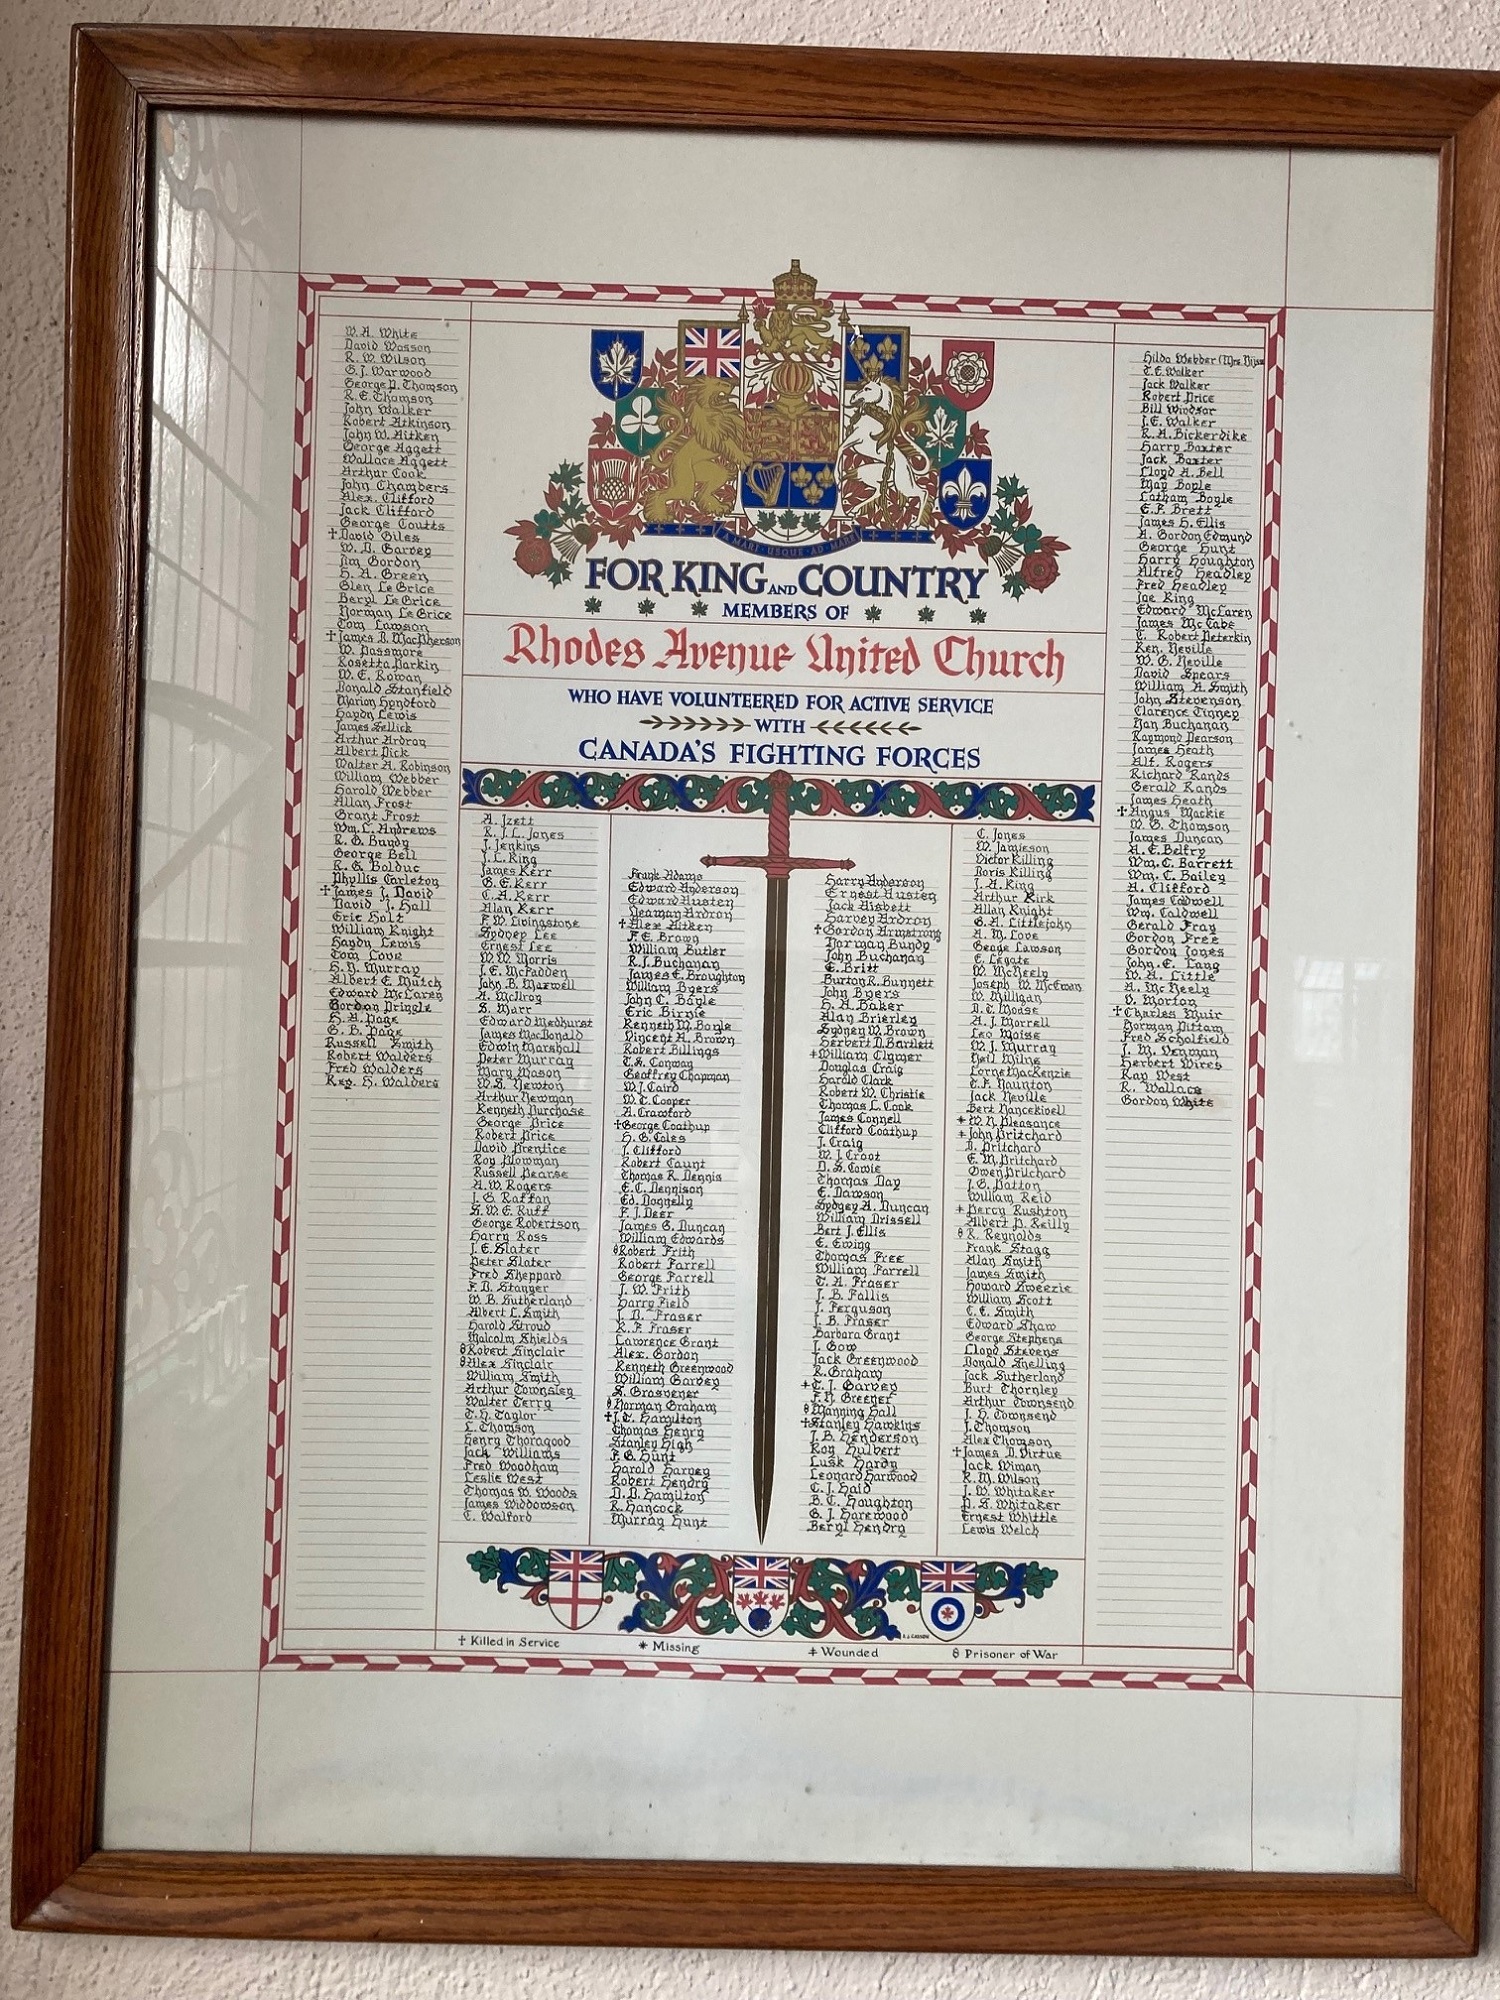 A MARI · USQUE · AD MARE
FOR KING AND COUNTRY
MEMBERS OF
Rhodes Avenue United Church
WHO HAVE VOLUNTEERED FOR ACTIVE SERVICE
WITH
CANADA'S FIGHTING FORCES
W. A. White
David Wasson
R. W. Wilson
G. J. Warwood
George P. Thomson
R. E. Thomson
John Walker
Robert Atkinson
John W. Aitken
George Aggett
Wallace Aggett
Arthur Cook
John Chambers
Alex. Clifford
Jack Clifford
George Coutts
† David Giles
W. D. Garvey
Jim Gordon
H. A. Green
Glen Le Grice
Beryl Le Grice
Norman Le Grice
Tom Lawson
† James D. MacPherson
W. Passmore
Rosetta Parkin
W. E. Rowan
Donald Stanfield
Marion Hyndford
Haydn Lewis
James Sellick
Arthur Ardron
Albert Dick
Walter A. Robinson
William Webber
Harold Webber
Allan Frost
Grant Frost
Wm. L. Andrews
R. G. Bundy
George Bell
R. G. Bolduc
Phyllis Carleton
† James J. David
David J. Hall
Eric Holt
William Knight
Haydn Lewis
Tom Love
H. N. Murray
Albert E. Mutch
Edward McLaren
Gordon Pringle
H. A. Page
G. B. Page
Russell Smith
Robert Walders
Fred Walders
Reg. H. Walders
A. Izett
R. J. L. Jones
J. Jenkins
J. L. King
James Kerr
G. E. Kerr
C. A. Kerr
Alan Kerr
F. W. Livingstone
Sydney Lee
Ernest Lee
W. W. Morris
J. E. McFadden
John B. Maxwell
A. McIlroy
S. Marr
Edward Medhurst
James MacDonald
Edwin Marshall
Peter Murray
Mary Mason
W. S. Newton
Arthur Newman
Kenneth Purchase
George Price
Robert Price
David Prentice
Roy Plowman
Russell Pearse
A. W. Rogers
J. G. Raffan
S. W. E. Ruff
George Robertson
Harry Ross
J. E. Slater
Peter Slater
Fred Sheppard
F. D. Stanger
W. B. Sutherland
Albert L. Smith
Harold Stroud
Malcolm Shields
§ Robert Sinclair
§ Alex Sinclair
William Smith
Arthur Townsley
Walter Terry
T. H. Taylor
L. Thomson
Henry Thoragood
Jack Williams
Fred Woodham
Leslie West
Thomas W. Woods
James Widdowson
C. Walford
Frank Adams
Edward Anderson
Edward Austen
Neaman Ardron
† Alex Aitken
F. E. Brown
William Butler
R. J. Buchanan
James E. Broughton
William Byers
John C. Boyle
Eric Birnie
Kenneth M. Boyle
Vincent A. Brown
Robert Billings
T. S. Conway
Geoffrey Chapman
W. J. Caird
W. C. Cooper
A. Crawford
‡ George Coathup
H. G. Coles
J. Clifford
Robert Caunt
Thomas R. Dennis
E. C. Dennison
Ed. Donnelly
F. J. Deer
James G. Duncan
William Edwards
§ Robert Frith
Robert Farrell
George Farrell
J. W. Frith
Harry Field
J. D. Fraser
R. F. Fraser
Lawrence Grant
Alex. Gordon
Kenneth Greenwood
William Garvey
S. Grosvener
§ Norman Graham
† J. C. Hamilton
Thomas Henry
Stanley High
F. G. Hunt
Harold Harvey
Robert Hendry
D. D. Hamilton
R. Hancock
Murray Hunt
Harry Anderson
Ernest Austen
Jack Aisbett
Harvey Ardron
† Gordon Armstrong
Norman Bundy
John Buchanan
E. Britt
Burton R. Bunnett
John Byers
H. A. Baker
Alan Brierley
Sydney W. Brown
Herbert D. Bartlett
‡ William Clymer
Douglas Craig
Harold Clark
Robert W. Christie
Thomas L. Cook
James Connell
Clifford Coathup
J. Craig
W. J. Croot
D. S. Cowie
Thomas Day
E. Dawson
Sydney A. Duncan
William Drissell
Bert J. Ellis
E. Ewing
Thomas Free
William Farrell
T. A. Fraser
J. B. Fallis
J. Ferguson
J. B. Fraser
Barbara Grant
J. Gow
Jack Greenwood
R. Graham
‡ C. J. Garvey
F. N. Greener
§ Manning Hall
† Stanley Hawkins
J. B. Henderson
Roy Hulbert
Lusk Hardy
Leonard Harwood
C. J. Haid
B. C. Houghton
G. J. Harewood
Beryl Hendry
C. Jones
W. Jamieson
Victor Killing
Doris Killing
J. A. King
Arthur Kirk
Allan Knight
G. A. Littlejohn
A. M. Love
George Lawson
E. Legate
W. McNeely
Joseph W. McEwan
W. Milligan
D. T. Moase
A. J. Morrell
Leo Moise
W. J. Murray
Neil Milne
Lorne MacKenzie
T. F. Naunton
Jack Neville
Bert Nancekivell
* W. N. Pleasance
‡ John Pritchard
D. Pritchard
E. M. Pritchard
Owen Pritchard
J. G. Patton
William Reid
‡ Percy Rushton
Albert P. Reilly
§ R. Reynolds
Frank Stagg
Alan Smith
James Smith
Howard Sweezie
William Scott
C. E. Smith
Edward Shaw
George Stephens
Lloyd Stevens
Donald Snelling
Jack Sutherland
Burt Thornley
Arthur Townsend
J. H. Townsend
J. Thomson
Alex Thomson
† James D. Virtue
Jack Wiman
R. M. Wilson
J. W. Whitaker
P. S. Whitaker
Ernest Whittle
Lewis Welch
Hilda Webber (Mrs.
T. E. Walker
Jack Walker
Robert Price
Bill Windsor
J. E. Walker
R. A. Bickerdike
Harry Baxter
Jack Baxter
Lloyd A. Bell
May Boyle
Latham Boyle
E. F. Brett
James H. Ellis
A. Gordon Edmund
George Hunt
Harry Houghton
Alfred Headley
Fred Headley
Joe King
Edward McLaren
James McCabe
C. Robert Peterkin
Ken. Neville
W. G. Neville
David Spears
William A. Smith
John Stevenson
Clarence Tinney
Dan Buchanan
Raymond Pearson
James Heath
Alf. Rogers
Richard Rands
Gerald Rands
James Heath
† Angus Mackie
W. G. Thomson
James Duncan
A. E. Belfry
Wm. C. Barrett
Wm. C. Bailey
A. Clifford
James Caldwell
Wm. Caldwell
Gerald Fray
Gordon Free
Gordon Jones
John. E. Lang
W. A. Little
A. McNeely
V. Morton
† Charles Muir
Norman Pittam
Fred Scholfield
J. M. Venman
Herbert Wires
Ray West
R. Wallace
Gordon White
† Killed in Service * Missing ‡ Wounded § Prisoner of War